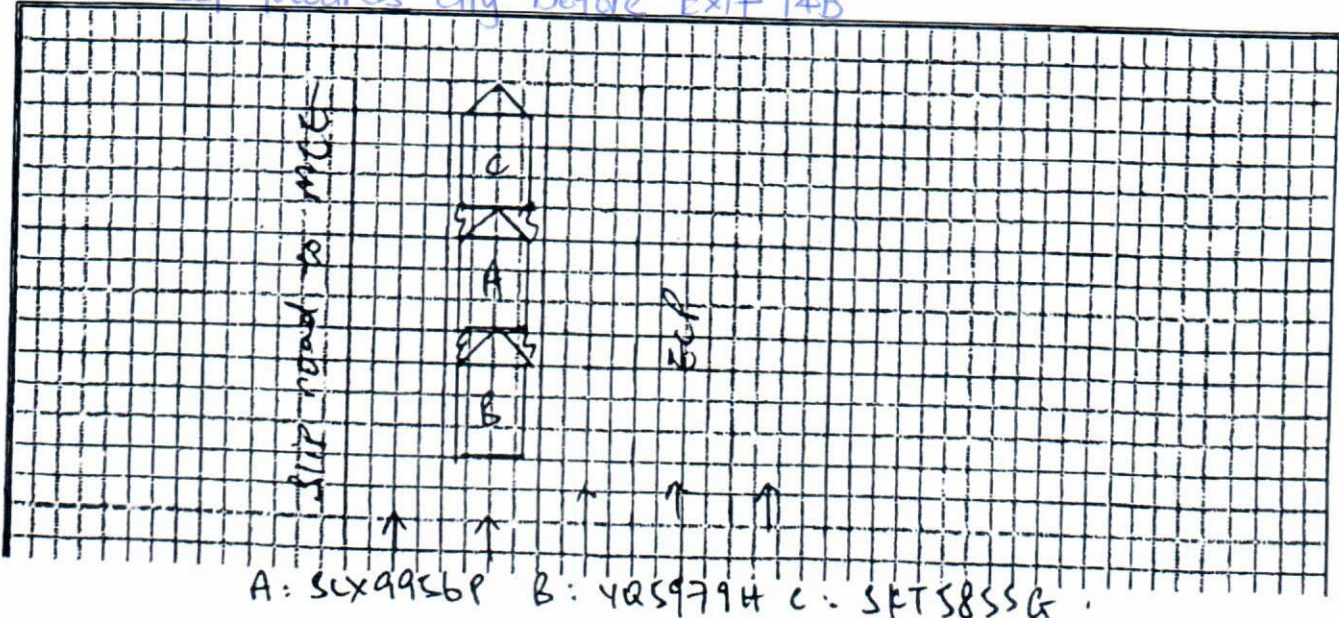 towards city before Exit 14B
Slip road to MCE
C
A
B
ECP
A: SLX9956P B: YQ5979H C: SKT5855G.